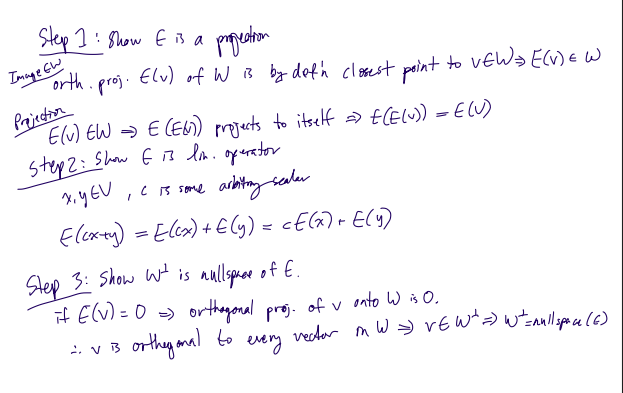 Step 1: Show E is a projection
Image ∈ W
orth. proj. E(v) of W is by def'n closest point to v∈W ⇒ E(v) ∈ W
Projection
E(v) ∈ W ⇒ E(E(v)) projects to itself ⇒ E(E(v)) = E(v)
Step 2: Show E is lin. operator
x,y ∈ V , c is some arbitrary scalar
E(cx+y) = E(cx) + E(y) = cE(x) + E(y)
Step 3: Show W⊥ is nullspace of E.
if E(v) = 0 ⇒ orthogonal proj. of v onto W is 0.
∴ v is orthogonal to every vector in W ⇒ v ∈ W⊥ ⇒ W⊥ = nullspace(E)